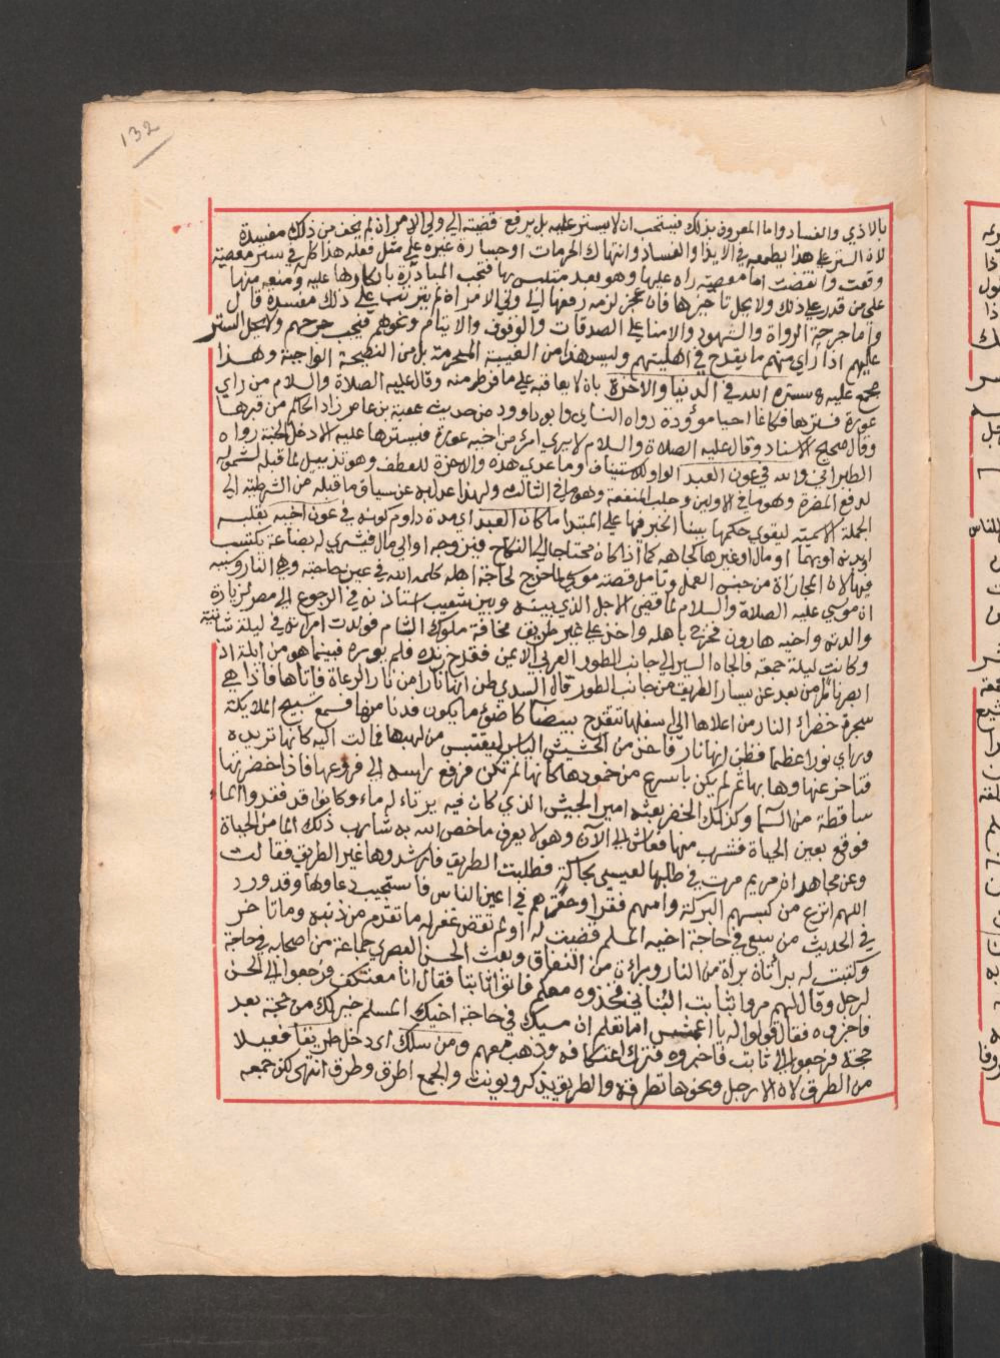 132
بالاذي والفساد واما المعروف بذلك فيستحب ان لا يستر عليه بل يرفع قضيته الي ولي الامر ان لم يخف من ذلك مفسدة
لان الستر علي هذا يطمعه في الايذا والفساد وانتهاك الحرمات او جسارة غيره علي مثل فعله هذا كله في ستر معصية
وقعت وانقضت اما معصية راه عليها وهو بعد متلبس بها فتجب المبادرة بانكارها عليه ومنعه منها
علي من قدر علي ذلك ولا يحل تاخيرها فان عجز لزمه رفعها الي ولي الامر اذا لم يترتب علي ذلك مفسدة قال
واما جرحة الرواة والشهود والامنا علي الصدقات والوقوف والايتام ونحوهم فيجب جرحهم ولا يحل الستر
عليهم اذا راي منهم ما يقدح في اهليتهم وليس هذا من الغيبة المحرمة بل من النصيحة الواجبة وهذا
مجمع عليه ه ستره الله في الدنيا والاخرة بان لا يعاقبه علي ما فرط منه وقال عليه الصلاة والسلام من راي
عورة فسترها فكانما احيا موؤدة رواه النساي وابو داوود من حديث عقبة بن عامر زاد الحاكم من قبرها
وقال صحيح الاسناد وقال عليه الصلاة والسلام لا يري امرؤ من اخيه عورة فيسترها عليه الا دخل الجنة رواه
الطبراني والله في عون العبد الواو للاستيناف وما عدي هذه والاخرة للعطف وهو تذييل لما قبله لشموله
لدفع المضرة وهو ما في الاولين وجلب المنفعة وهو ما في الثالث ولهذا عدل به عن سياق ما قبله من الشرطية الي
الجملة الاسمية ليقوي حكمها ببنا الخبر فيها علي المبتدا ما كان العبد اي مدة دوام كونه في عون اخيه بقلبه
او بدنه او بهما او مال او غيرها كجاهه كما اذا كان محتاجا الي النكاح فيزوجه او الي مال فيشري له بضاعة يكتسب
فيها لان المجازاة من جنس العمل وتامل قصة موسي لما خرج لحاجة اهله كلمه الله في عين حاجته وهي النار وسببه
ان موسي عليه الصلاة والسلام لما قضي الاجل الذي بينه وبين شعيب استاذنه في الرجوع الي مصر لزيارة
والدته واخيه هارون فخرج باهله واخذ علي غير طريق مخافة ملوك الشام فولدت امراته في ليلة شاتية
وكانت ليلة جمعة فالجاه السير الي جانب الطور الغربي الايمن فقدح زنده فلم يوره فبينما هو من الله اذ
ابصر نارا من بعد عن يسار الطريق من جانب الطور قال السدي ظن انها نارا من نار الرعاة فاتاها فاذا هي
شجرة خضراء النار من اعلاها الي اسفلها تتقدح بيضا كاضوئ ما يكون فدنا منها فسمع تسبيح الملايكة
وراي نورا عظيما فظن انها نار فاخذ من الحشيش اليابس ليقتبس من لهبها فمالت اليه كانها تريده
فتاخر عنها وهابها ثم لم يكن باسرع من خمودها كانها لم تكن فرفع راسه الي فروعها فاذا خضرتها
ساقطة من السما وكذلك الخضر بعثه امير الجيش الذي كان فيه يرتاد له ماء وكانوا قد فقدوا الماء
فوقع بعين الحياة فشرب منها فعاش الي الآن وهو لا يعرف ما خص الله به شارب ذلك الما من الحياة
وعن مجاهد ان مريم مرت في طلبها لعيسي بحاكة فطلبت الطريق فارشدوها غير الطريق فقالت
اللهم انزع من كسبهم البركة وامتهم فقرا وحقرهم في اعين الناس فاستجيب دعاوها وقد ورد
في الحديث من سعي في حاجة اخيه المسلم قضيت له او لم تقض غفر له ما تقدم من ذنبه وما تاخر
وكتبت له براتان براة من النار وبراءة من النفاق وبعث الحسن البصري جماعة من اصحابه في حاجة
لرجل وقال لهم مروا بثابت البناني فخذوه معكم فاتوا ثابتا فقال انا معتكف فرجعوا الي الحسن
فاخبروه فقال قولوا له يا اعمش اما تعلم ان مشيك في حاجة اخيك المسلم خير لك من حجة بعد
حجة فرجعوا الي ثابت فاخبروه فترك اعتكافه وذهب معهم ومن سلك اي دخل طريقا فعيلا
من الطرق لان الارجل ونحوها تطرقه والطريق يذكر ويونث والجمع اطرق وطرق انتهي لكن جمعه